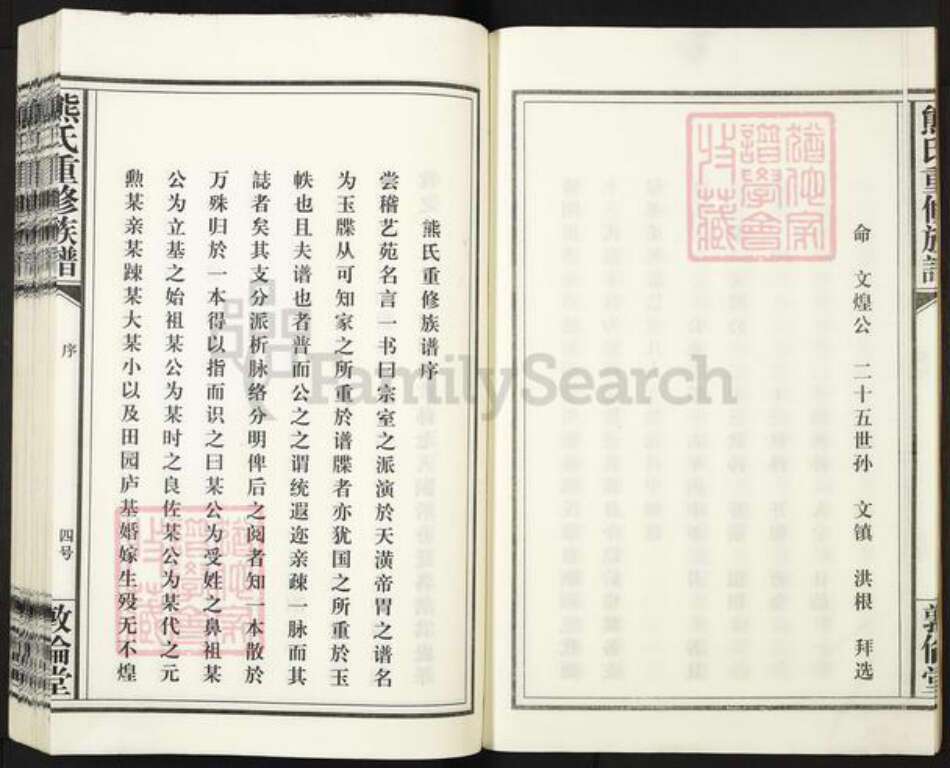 命　文煌公　二十五世孙　文镇　洪根　拜选
熊氏重修族谱序
尝稽艺苑名言一书曰宗室之派演於天潢帝胄之谱名
为玉牒从可知家之所重於谱牒者亦犹国之所重於玉
帙也且夫谱也者普而公之之谓统遐迩亲疎一脉而其
誌者矣其支分派析脉络分明俾后之阅者知一本散於
万殊归於一本得以指而识之曰某公为受姓之鼻祖某
公为立基之始祖某公为某时之良佐某公为某代之元
勲某亲某踈某大某小以及田园庐基婚嫁生殁无不煌
熊氏重修族譜
序
四号
敦倫堂
FamilySearch